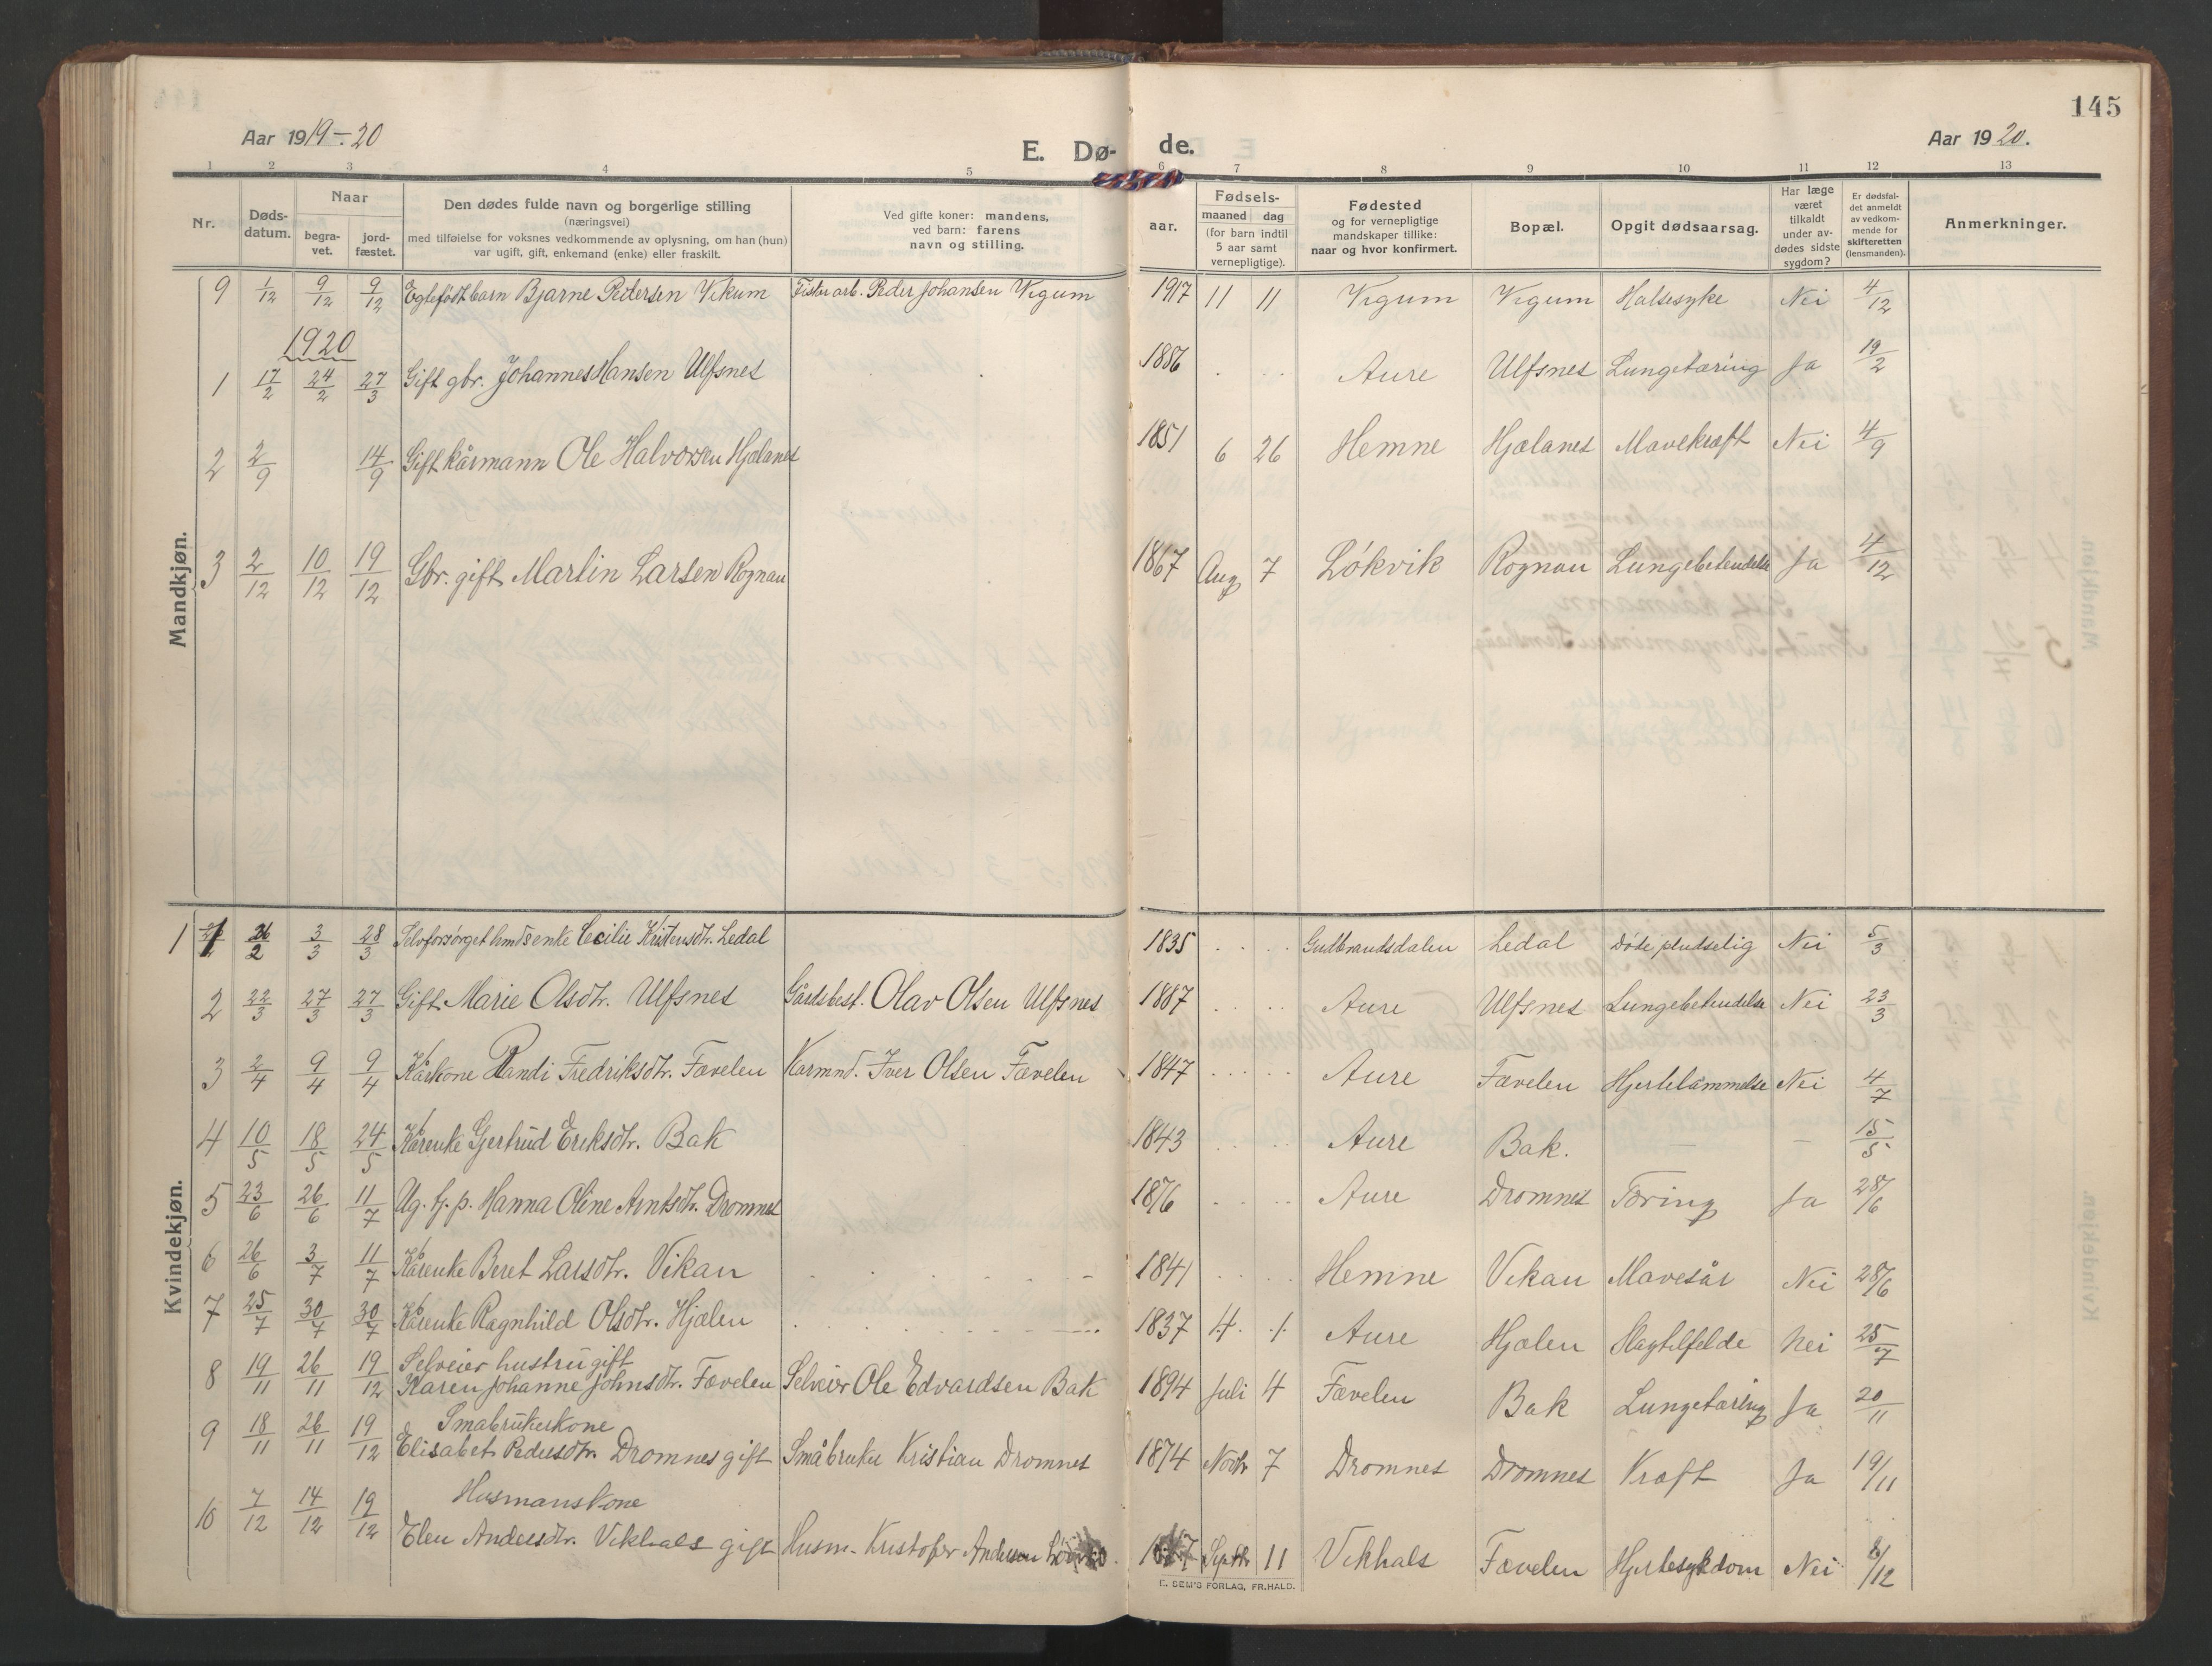 145
Aar 1919-20
E. Dø- de.
Aar 1920.
1 2 3 4 5 6 7 8 9 10 11 12 13
Nr.
Døds-datum.
Naar
begra-vet.
jord-fæstet.
Den dødes fulde navn og borgerlige stilling
(næringsvei)
med tilføielse for voksnes vedkommende av oplysning, om han (hun)
var ugift, gift, enkemand (enke) eller fraskilt.
Ved gifte koner: mandens,
ved barn: farens
navn og stilling.
Fødsels-
aar.
maaned dag
(for barn indtil
5 aar samt
vernepligtige).
Fødested
og for vernepligtige
mandskaper tillike:
naar og hvor konfirmert.
Bopæl.
Opgit dødsaarsag.
Har læge
været
tilkaldt
under av-
dødes sidste
sygdom?
Er dødsfal-
det anmeldt
av vedkom-
mende for
skifteretten
(lensmanden).
Anmerkninger.
Mandkjøn.
9 1/12 9/12 9/12 Egtefødt barn Bjarne Pedersen Vikum Fisker arb. Peder Johansen Vigum 1917 11 11 Vigum Vigum Halsesyke Nei 4/12
1920
1 17/2 24/2 27/3 Gift gbr. Johannes Hansen Ulfsnes 1886 Aure Ulfsnes Lungetæring Ja 19/2
2 2/9 14/9 Gift kårmann Ole Halvorsen Hjælanes 1851 6 26 Hemne Hjælanes Mavekræft Nei 4/9
3 2/12 10/12 19/12 Gbr. gift Martin Larsen Rognau 1867 Aug 7 Løkvik Rognau Lungebetendelse Ja 4/12
Kvindekjøn.
1 26/2 3/3 28/3 Selvforsørget Cecilie Kristensdtr. Ledal 1835 Gudbrandsdalen Ledal Døde pludselig Nei 5/3
2 22/3 27/3 27/3 Gift Marie Olsdtr. Ulfsnes Gårdsbest. Olav Olsen Ulfsnes 1887 Aure Ulfsnes Lungebetendelse Nei 23/3
3 2/4 9/4 9/4 Kårkone Randi Fredriksdtr. Fævelen Karmnd. Iver Olsen Fævelen 1847 Aure Fævelen Hjertelammelse Nei 4/7
4 10/5 18/5 24/5 Kårenke Gjertrud Eriksdtr. Bak 1843 Aure Bak. — — 15/5
5 23/6 26/6 11/7 Ug. f. p. Hanna Oline Arntsdtr. Dromnes 1876 Aure Dromnes Tæring Ja 28/6
6 26/6 3/7 11/7 Kårenke Beret Larsdtr. Vikan 1841 Hemne Vikan Mavesår Nei 28/6
7 25/7 30/7 30/7 Kårenke Ragnhild Olsdtr. Hjælen 1837 4. 1. Aure Hjælen Slagtilfelde Nei 25/7
8 19/11 26/11 19/12 Selveier hustru gift
Karen Johanne Johnsdtr. Fævelen Selveier Ole Edvardsen Bak 1894 Juli 4 Fævelen Bak Lungetæring Ja 20/11
9 18/11 26/11 19/12 Småbrukerkone
Elisabet Pedersdtr. Dromnes gift Småbruker Kristian Dromnes 1874 Novbr 7 Dromnes Dromnes Kræft Ja 19/11
10 7/12 14/12 19/12 Husmanskone
Elen Andersdtr. Vikhals gift Husm. Kristofer Andersen Septbr 11 Vikhals Fævelen Hjertesykdom Nei 8/12
E. SEM'S FORLAG, FR.HALD.